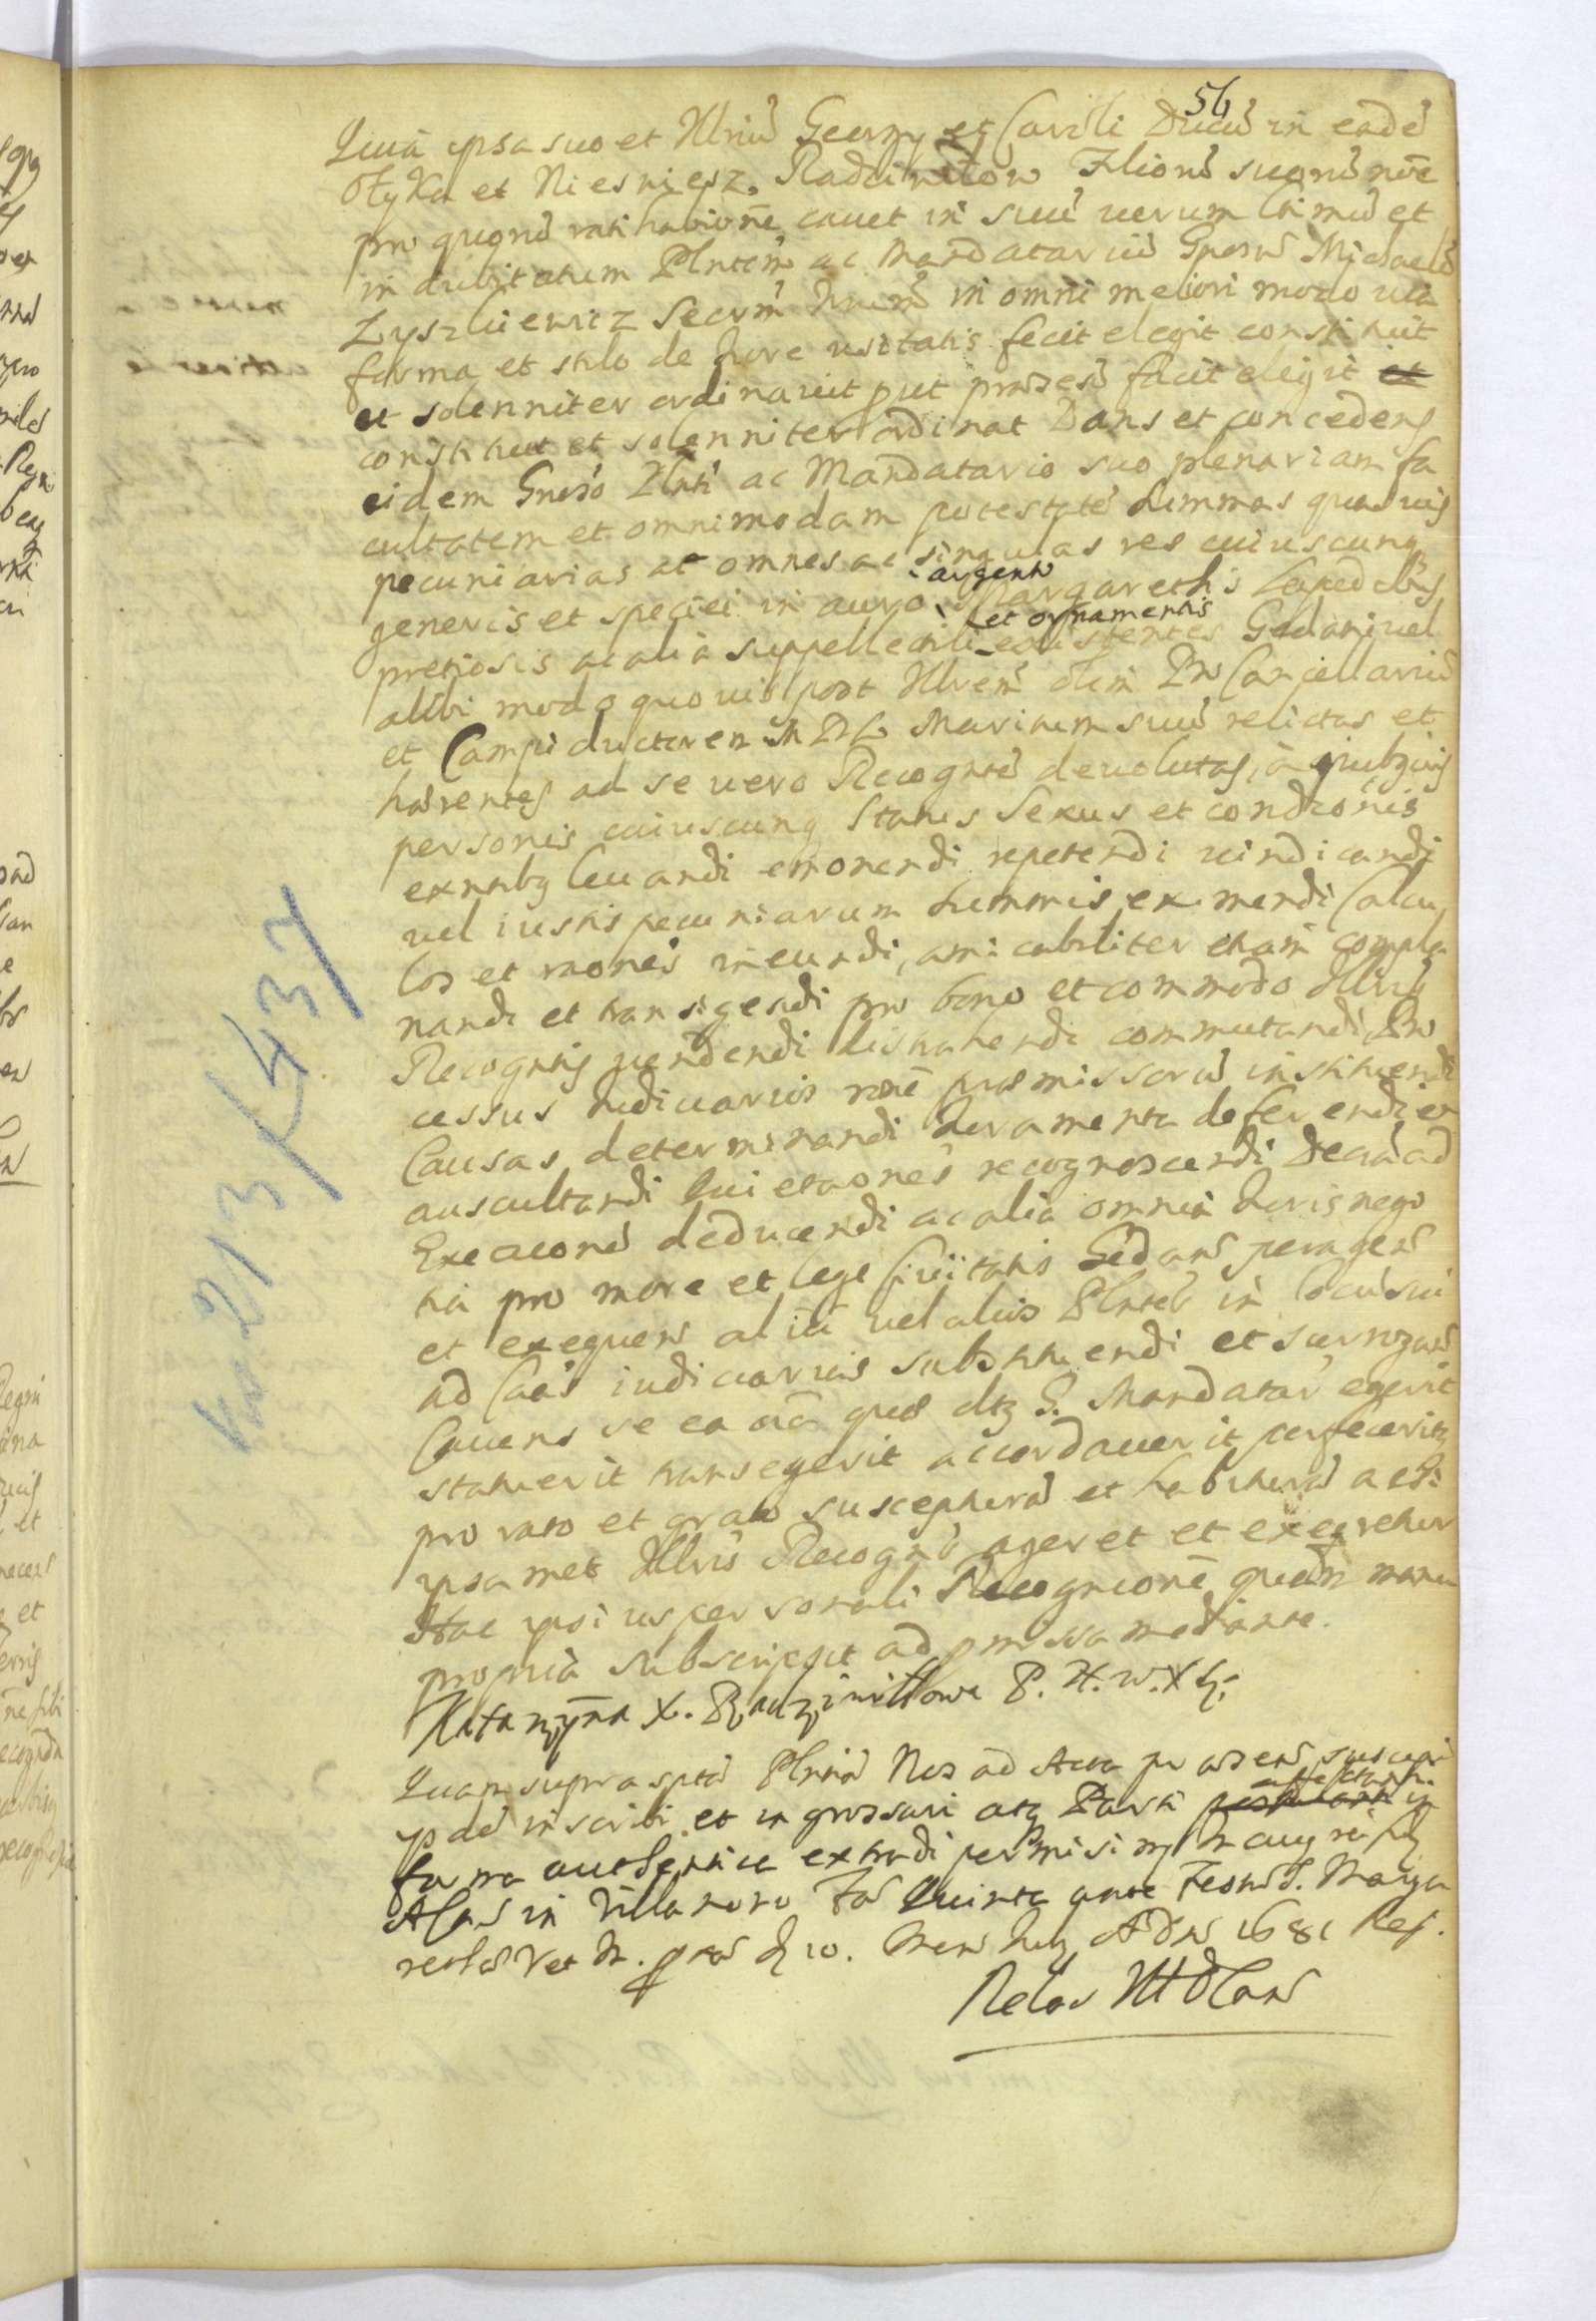 56
Quia ipsa suo et Illrium Georgy et Caroli Ducum in eadem
Otyka et Niesniesz. Radziwiłow Filiorum suorum noīe
pro quorum ratihabitione cauet in suum uerum ltimum et
indubitatum Plntem ac Mandatarium Gnosum Michaelem
Zyszkiewicz Secrm in omni meliori modo uia
forma et stilo de Iure usitatis fecit elegit constituit
et solenniter ordinauit put praesens facit eligit et
constituit et solenniter ordinat Dans et concedens
eidem Gnoso Plnti ac Mandatario suo plenariam fa
cultatem et omnimodam potestatem Summas quasuis
pecuniarias ac omnes ac singulas res cuiuscunq
generis et speciei in auro argento Margarethis Lapidibus
pretiosis ac alia suppellectili et ornamentis existentes Gedani uel
alibi modo quouis post Illrem olim Pro Cancellarium
et Campiductorem M D L Maritum suum relictas et
haerentes ad se uero Recogntem deuolutas, à quibusuis
personis cuiuscunq Status Sexus et condtionis
exntibq leuandi emonendi repetendi uindicandi
uel iustis pecuniarum Summis eximendi Calcu
los et raones ineundi, amicabiliter etiam compla
nandi et transigendi pro bono et commodo Illris
Recogntis uendendi distrahendi commutandi Pro
cessus Iudiciarios raōe praemissorum instituendi
Causas determinandi Iuramenta deferendi et
auscultandi Quietaones recognoscendi Decreta ad
Execaonem deducendi ac alia omnia Iuris nego
tia pro more et lege Ciuitatis Gedan peragen
et exequen alium uel alios Plntes in locum sui
ad Cas iudiciarias substituendi et surrogan
Cauens se ea oīa quae dtq G. Mandatar egerit
statuerit transegerit accordauerit perfecerit
pro rato et grato suscepturam et habituram ac si
ipsamet Illris Recogns ageret et exequeretur
Hac ipsius personali Recognicione quam manu
propria subscripsit ad pmissa mediante.
Katarzyna X. Radziwiłłowa P. H. W. X L:
Quam supra sptam Plntiam Nos ad Acta praesen suscepi
inscribi et ingrossari atq Parti postulanti affectanti in
forma authentica extradi permisimq In cuiq rei fidem
Actum in Villa noua Fer Quinta ante Festum S. Marga
rethae V et M. 10. Mens July A Dni 1681 Reg.
Vu 213/437